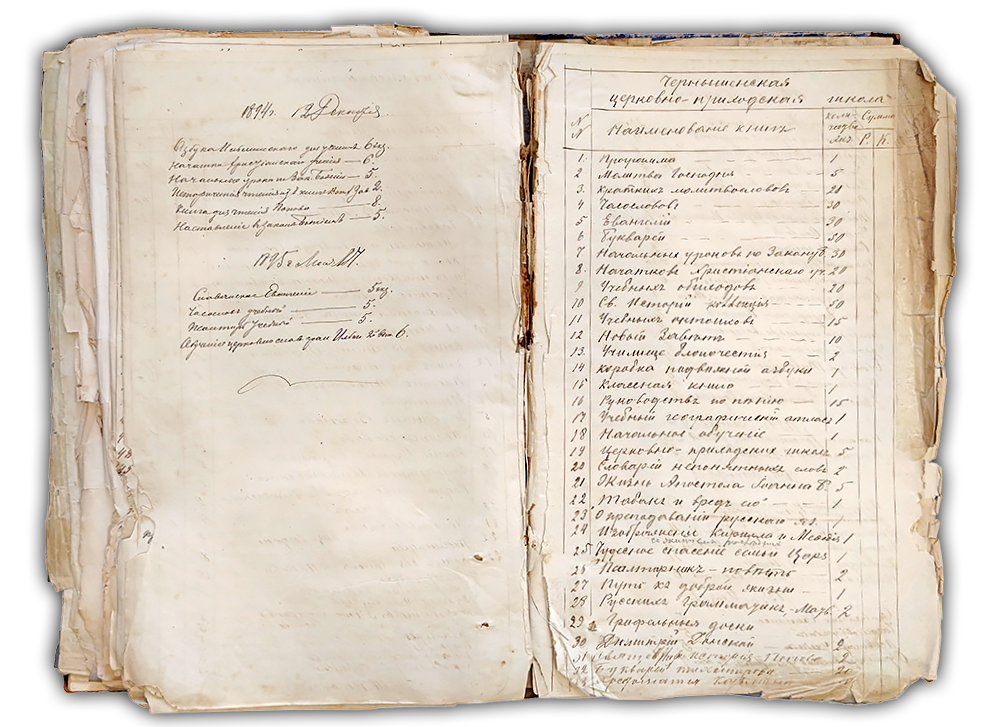 1894г. 12 Декабря
Азбука Ильминского для учениц 6 экз.
Начатки христіанскаго ученія — 6.
Начальные уроки по Зак. Божію — 5.
Историческія чтенія из книг Вет. Зав. 2.
Книга для чтенія Попова — 8.
Наставленіе в законѣ Божіемъ — 5.
1895 г. Мая 27.
Славянское Евангеліе — 5 экз.
Часослов учебной — 5.
Псалтирь учебной — 5.
Обученіе церковно слав. грам. Ильм. 6.
Чернышенская
церковно-приходская школа
N N Наименованіе книгъ Количество экз. Сумма Р. К.
1. Программа — 1
2 Молитва Господня — 5
3. Краткихъ молитвослововъ 20
4 Часослововъ — 30
5 Евангелій — 30
6 Букварей — 50
7 Начальныхъ уроковъ по Закону Б. 30
8. Начатковъ Христіанскаго уч. 20
9 Учебныхъ обиходовъ 20
10 Св. Исторій — 50
11 Учебныхъ октоиховъ 15
12 Новый Завѣтъ — 10
13. Училище благочестія — 2
14 Коробка подвижной азбуки 1
15 Классная книга — 1
16 Руководствъ по пѣнію — 15
17 Учебный географическій атласъ 1
18 Начальное обученіе 1
19 Церковно-приходских школъ 5
20 Словарей непонятныхъ словъ 2
21 Жизнь Апостола Іоанна Б. 5
22 Табакъ и вредъ его — 1
23 О преподаваніи русского яз. 1
24 Изображенія Кирилла и Меѳодія 1
25 Чудесное спасеніе семьи Царя 1
26 Псалтирникъ — 2
27 Путь къ доброй жизни — 1
28 Русскихъ Грамматикъ 2
29 Грифельныя доски
30 Димитрій Донской 2
31 исторія — Попова
32 Букварей
33